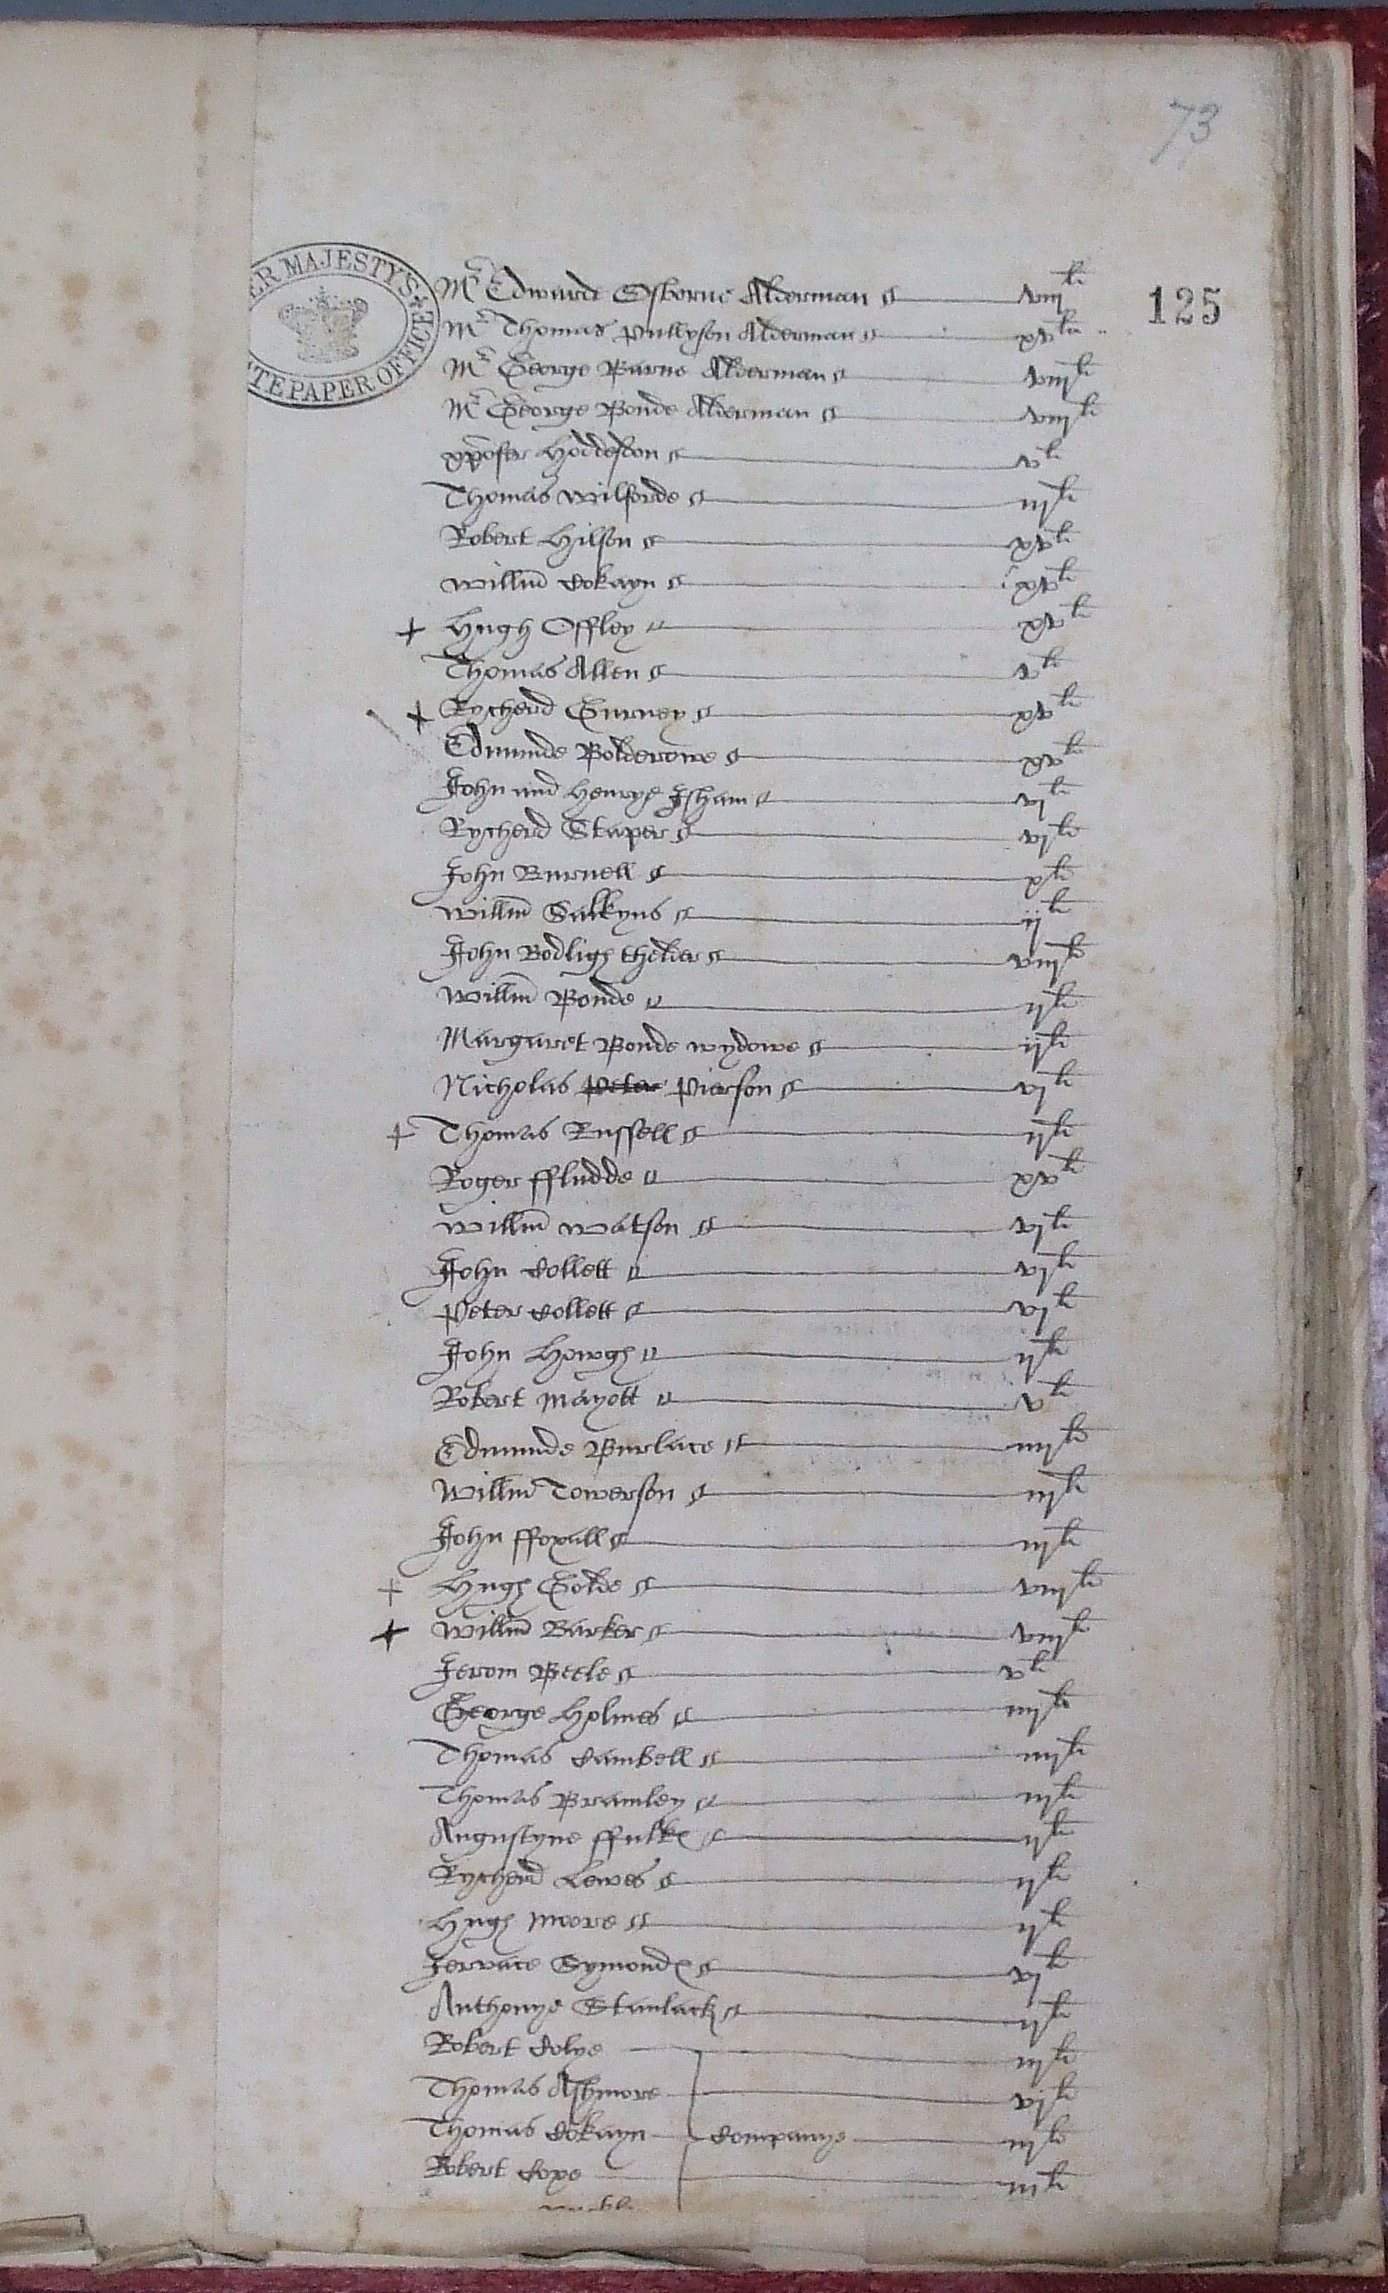 73
125
HER MAJESTY'S
STATE PAPER OFFICE
Mr Edwarde Osborne Alderman viijli
Mr Thomas Pullyson Alderman xvli
Mr George Barne Alderman viijli
Mr George Bonde Alderman viijli
xpofer Hoddesdon vli
Thomas Wilforde iijli
Robert Hilson xvli
Willm Cokayn xvli
+ Hugh Offley xvli
Thomas Allen vli
+ Rycherd Gurney xvli
Edmunde Bolderowe xvli
John and Henrye Isham vjli
Rycherd Staper vjli
John Burnell xli
Willm Salkyns ijli
John Bodligh thelder viijli
Willm Bonde ijli
Margaret Bonde wydowe ijli
Nicholas Peter Pierson vjli
+ Thomas Russell ijli
Roger ffludde xvli
Willm Watson vjli
John Collett vjli
Peter Collett vjli
John Howgh ijli
Robert Mayott vli
Edmunde Burlace iiijli
Willm Towerson iijli
John ffoxall iijli
+ Hugh Golde viijli
+ Willm Barker viijli
Jerom Beele vli
George Holmes iiijli
Thomas Cambell iiijli
Thomas Bramley iijli
Augustyne ffulk ijli
Rycherd Lewes ijli
Hugh Moore ijli
Jervace Symond vjli
Anthonye Stanlack ijli
Robert Colye iijli
Thomas Ashmore vjli
Thomas Cokayn Companye iijli
Robert Coxe iijli